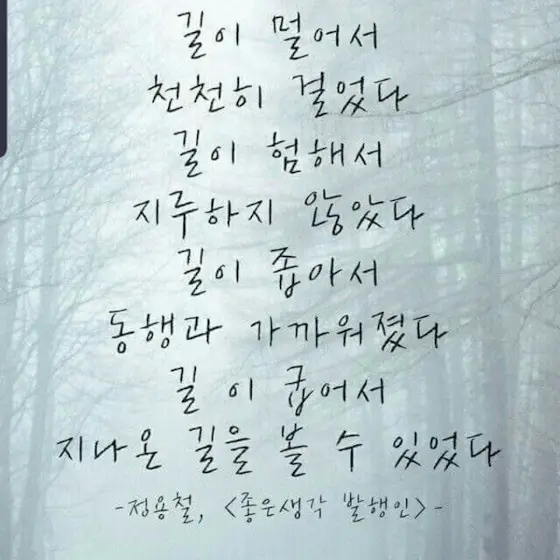 길이 멀어서
천천히 걸었다
길이 험해서
지루하지 않았다
길이 좁아서
동행과 가까워졌다
길 이 굽어서
지나온 길을 볼 수 있었다
-정용철, <좋은생각 발행인>-